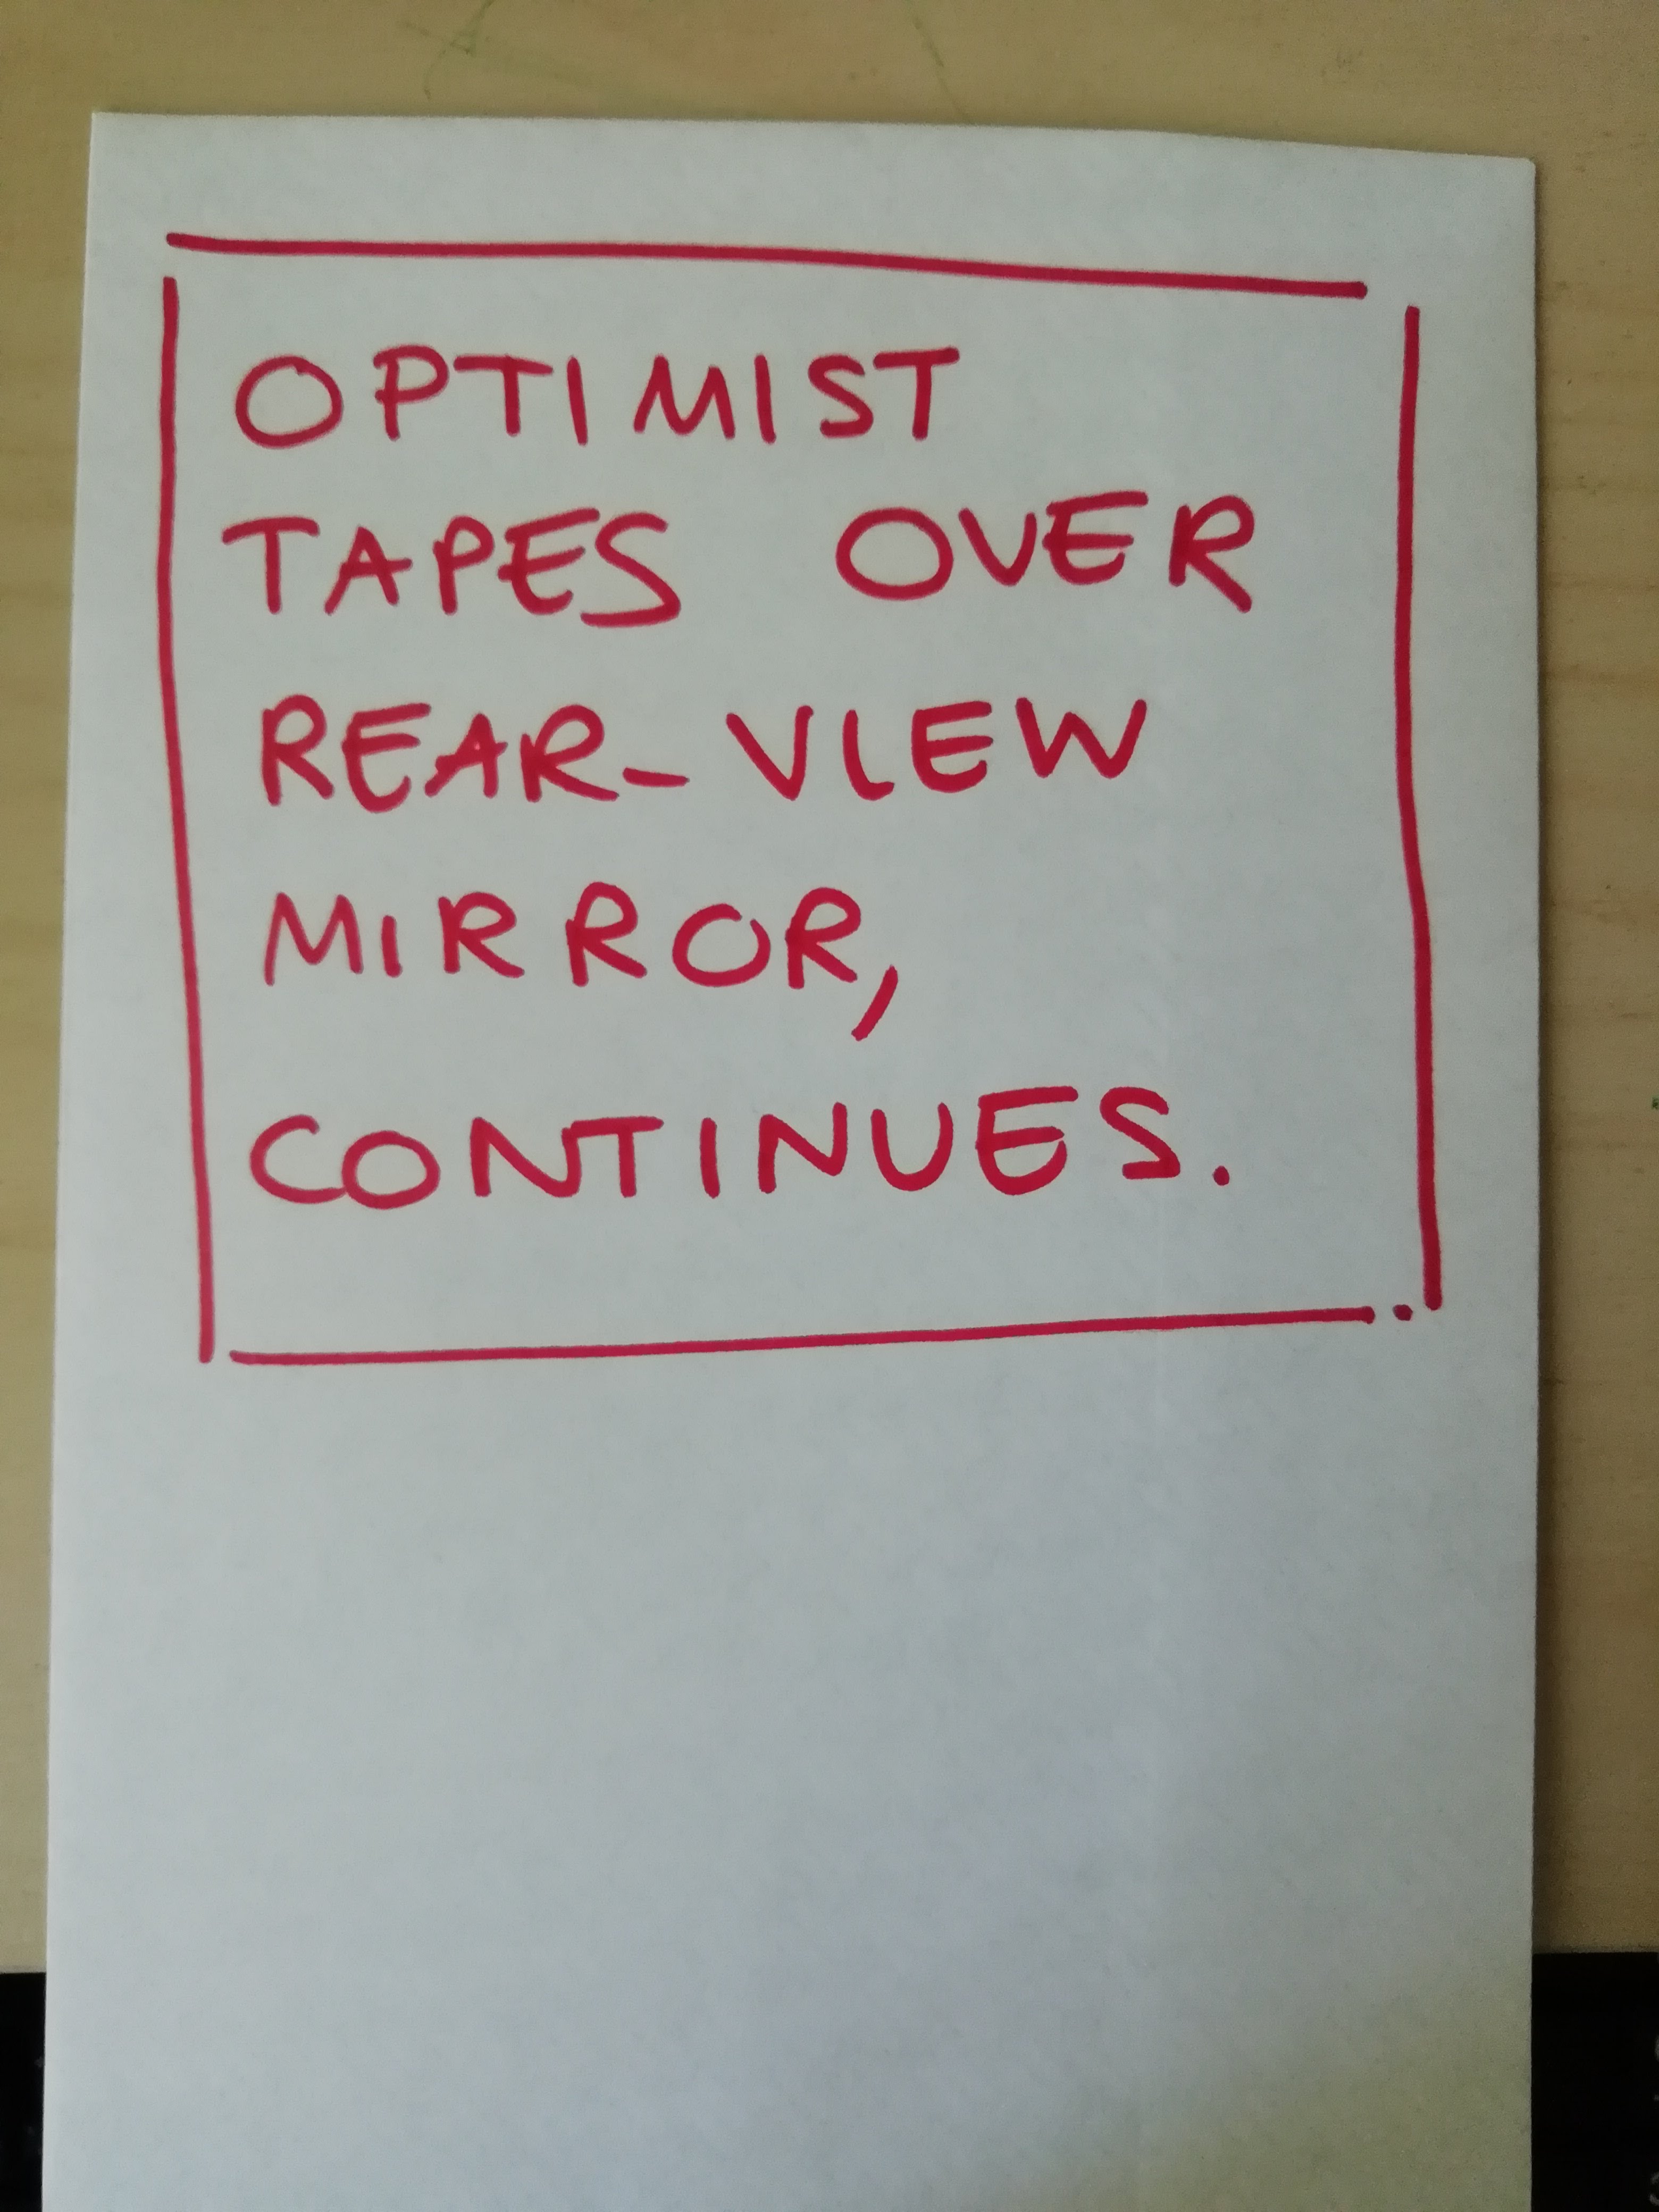 OPTIMIST
TAPES OVER
REAR-VIEW
MIRROR,
CONTINUES.